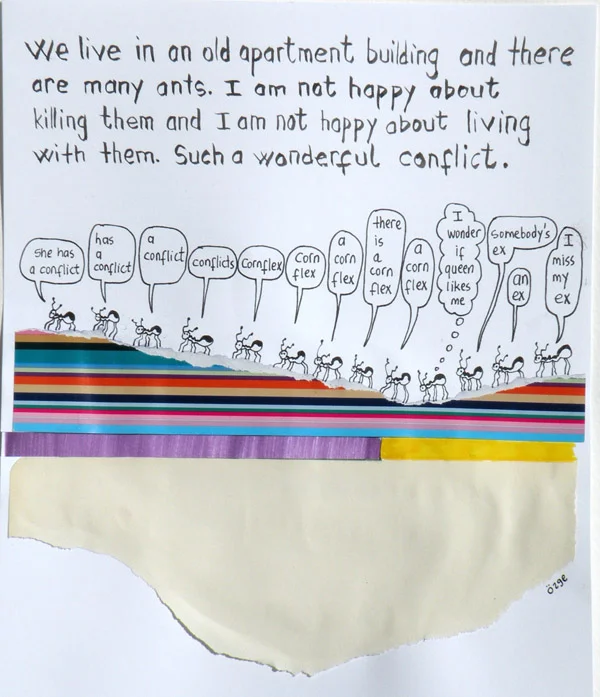 We live in an old apartment building and there
are many ants. I am not happy about
killing them and I am not happy about living
with them. Such a wonderful conflict.
she has
a conflict
has
a
conflict
a
conflict
conflicts
Cornflex
Corn
flex
a
corn
flex
there
is
a
corn
flex
a
corn
flex
I
wonder
if
queen
likes
me
somebody's
ex
an
ex
I
miss
my
ex
özge